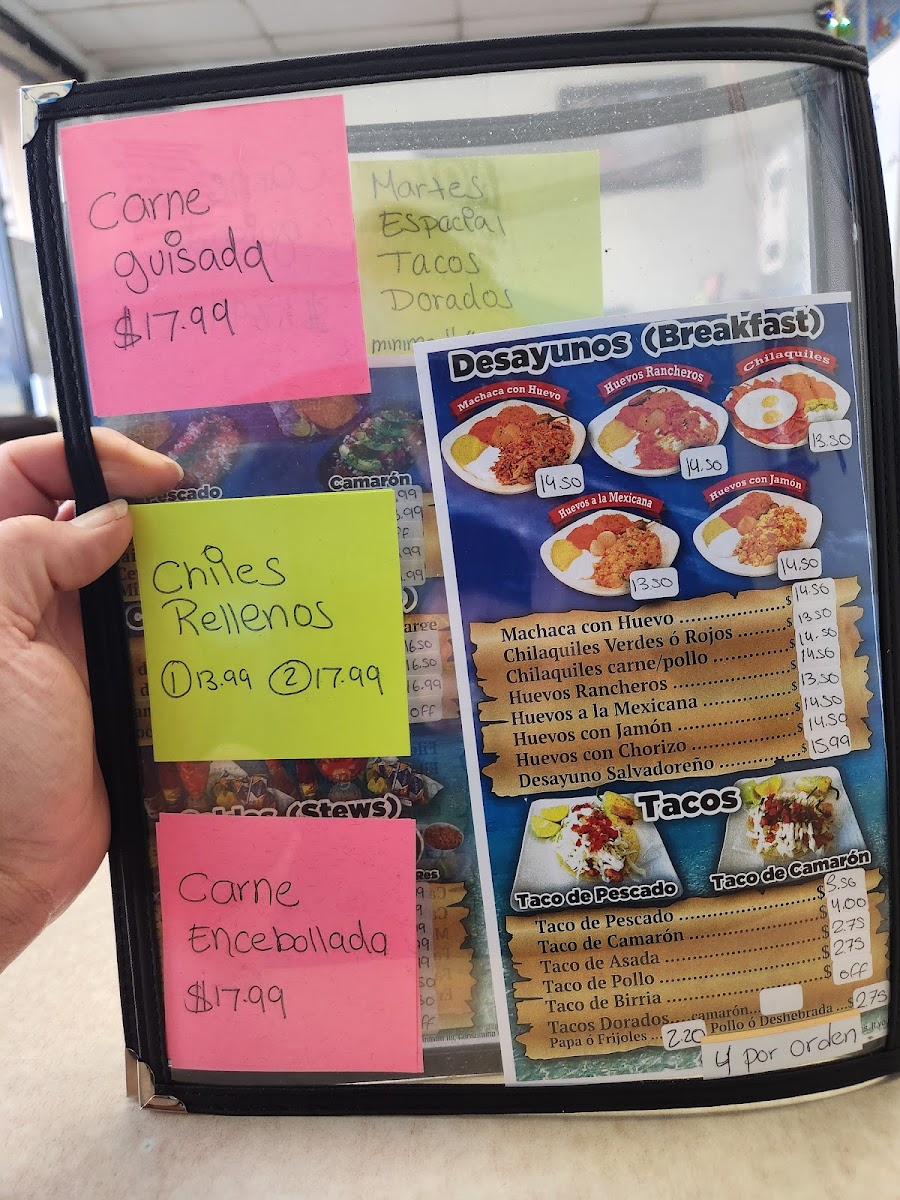 Carne
guisada
$17.99
Martes
Espacial
Tacos
Dorados
Pescado
Camarón
Chiles
Rellenos
① 13.99 ② 17.99
(Stews)
Carne
Encebollada
$17.99
Desayunos (Breakfast)
Machaca con Huevo
14.50
Huevos Rancheros
14.50
Chilaquiles
13.50
Huevos a la Mexicana
13.50
Huevos con Jamón
14.50
Machaca con Huevo ........................ $ 14.50
Chilaquiles Verdes ó Rojos ............ $ 13.50
Chilaquiles carne/pollo .................. $ 14.50
Huevos Rancheros .......................... $ 14.50
Huevos a la Mexicana ..................... $ 13.50
Huevos con Jamón .......................... $ 14.50
Huevos con Chorizo ........................ $ 14.50
Desayuno Salvadoreño ................... $ 15.99
Tacos
Taco de Pescado
Taco de Camarón
Taco de Pescado ............................ $ 3.50
Taco de Camarón ........................... $ 4.00
Taco de Asada ............................... $ 2.75
Taco de Pollo ................................. $ 2.75
Taco de Birria ................................ $ off
Tacos Dorados....camarón...
Papa ó Frijoles ... 2.20 Pollo ó Deshebrada ...$ 2.75
4 por orden